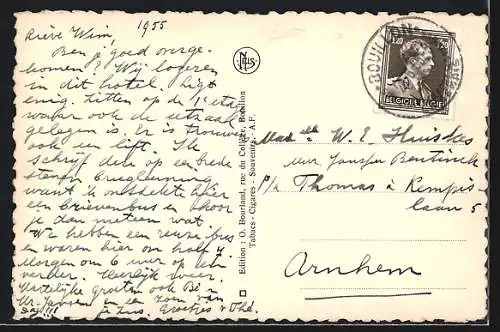 1955
Lieve Wim,
Ben je goed overge-
komen? Wij logeren
in dit hotel. Ligt
enig. Zitten op de 1e etage
waar ook de eetzaal
gelegen is. Er is trouwens
ook een lift. Ik
schrijf deze op een brede
stenen
want ik ontdekte hier
een brievenbus en
je dan meteen wat.
We hebben een reuze bus
en waren hier om half
Morgen om 6 uur op en
verder. Heerlijk weer.
Hartelijke groeten ook
Mr. Jansen en een zoen van
je zus. Groetjes v Thé.
Dag!!!
NELS
Edition: O. Bourland, rue du Collège, Bouillon
Tabacs - Cigares - Souvenirs - A.F.
BOUILLON
1.20 1.20
BELGIQUE BELGIË
W. E.
Thomas à Kempis-
laan 5
Arnhem